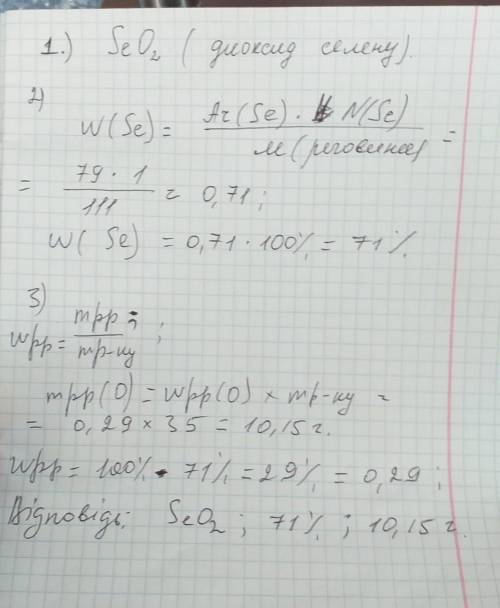 1.) SeO₂ (диоксид селену).
2)
W(Se) = Ar(Se) · N(Se) / M(реговини) =
= 79 · 1 / 111 = 0,71;
W(Se) = 0,71 · 100% = 71%
3)
Wpp = mpp / mp-ну ;
mpp(O) = Wpp(O) × mp-ну =
= 0,29 × 35 = 10,15 г.
Wpp = 100% - 71% = 29% = 0,29;
Відповідь: SeO₂ ; 71% ; 10,15 г.